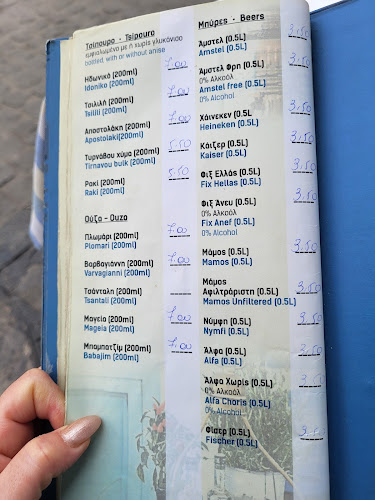 Τσίπουρο - Tsipouro
εμφιαλωμένο με ή χωρίς γλυκάνισο
bottled, with or without anise
Ηδωνικό (200ml) 7.00
Idoniko (200ml)
Τσιλιλή (200ml) 7.00
Tsilili (200ml)
Αποστολάκη (200ml) 7.00
Apostolaki(200ml)
Τυρνάβου χύμα (200ml) 5.50
Tirnavou bulk (200ml)
Ρακί (200ml) 5.50
Raki (200ml)
Ούζο - Ouzo
Πλωμάρι (200ml) 7.00
Plomari (200ml)
Βαρβαγιάννη (200ml) 7.00
Varvagianni (200ml)
Τσάνταλη (200ml)
Tsantali (200ml)
Μαγεία (200ml) 7.00
Mageia (200ml)
Μπαμπατζίμ (200ml) 7.00
Babajim (200ml)
Μπύρες - Beers
Άμστελ (0.5L) 3.50
Amstel (0.5L)
Άμστελ Φρη (0.5L) 3.50
0% Αλκοόλ
Amstel free (0.5L)
0% Alcohol
Χάινεκεν (0.5L) 3.50
Heineken (0.5L)
Κάιζερ (0.5L) 3.50
Kaiser (0.5L)
Φιξ Ελλάς (0.5L) 3.50
Fix Hellas (0.5L)
Φιξ Άνευ (0.5L) 3.50
0% Αλκοόλ
Fix Anef (0.5L)
0% Alcohol
Μάμος (0.5L) 3.50
Mamos (0.5L)
Μάμος 3.50
Αφιλτράριστη (0.5L)
Mamos Unfiltered (0.5L)
Νύμφη (0.5L) 3.50
Nymfi (0.5L)
Άλφα (0.5L) 3.50
Alfa (0.5L)
Άλφα Χωρίς (0.5L)
0% Αλκοόλ
Alfa Choris (0.5L)
0% Alcohol
Φίσερ (0.5L)
Fischer (0.5L)